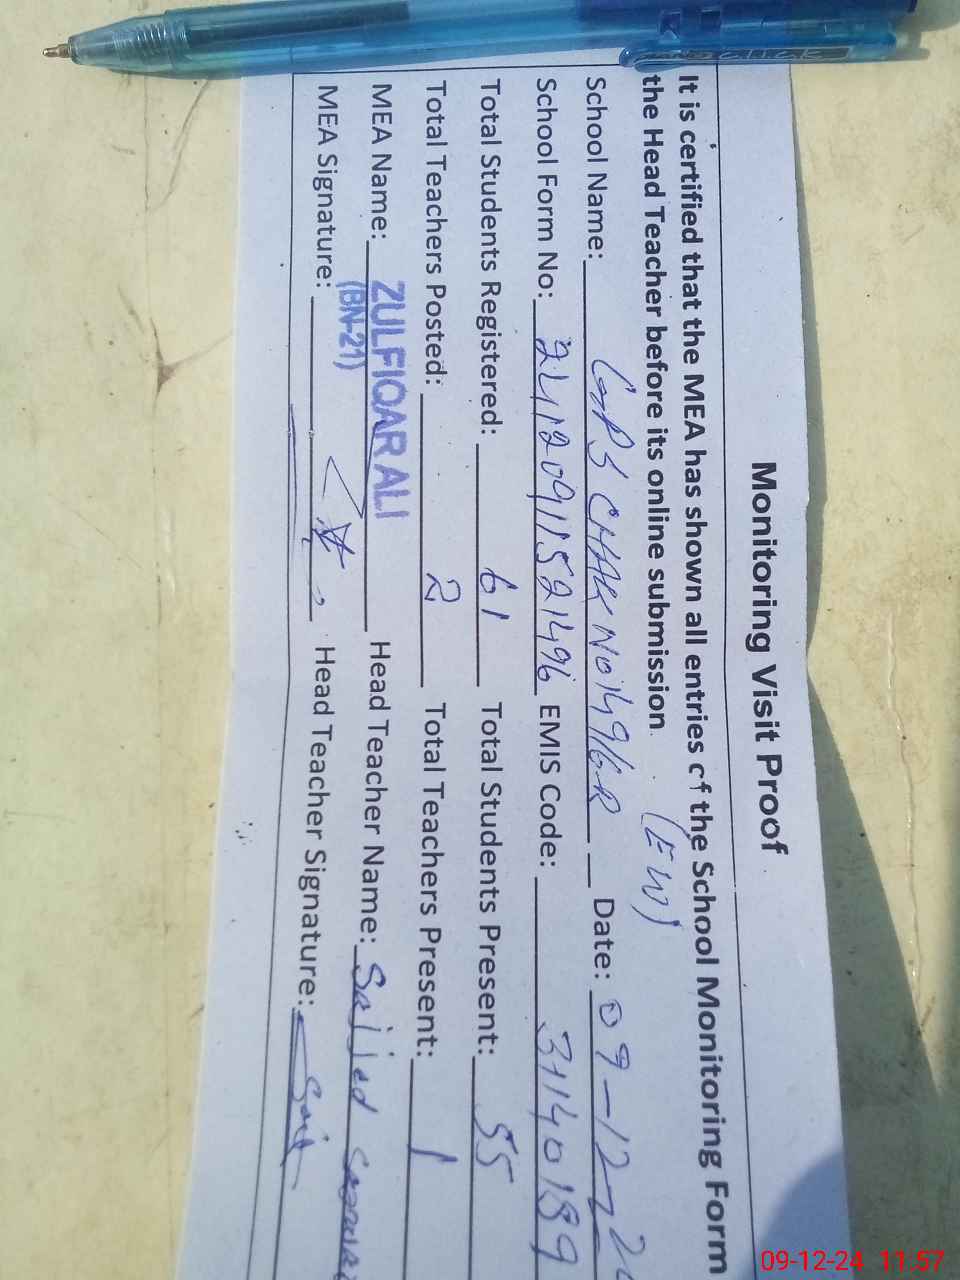 Monitoring Visit Proof
It is certified that the MEA has shown all entries of the School Monitoring Form
the Head Teacher before its online submission
(EW)
School Name: GPS CHAK NO 149 6-R Date: 09-12-2
School Form No: 241120911521496 EMIS Code: 31140189
Total Students Registered: 61 Total Students Present: 55
Total Teachers Posted: 2 Total Teachers Present: 1
MEA Name: ZULFIQAR ALI Head Teacher Name: Sajjad
(BN-21)
MEA Signature: Head Teacher Signature:
09-12-24 11:57